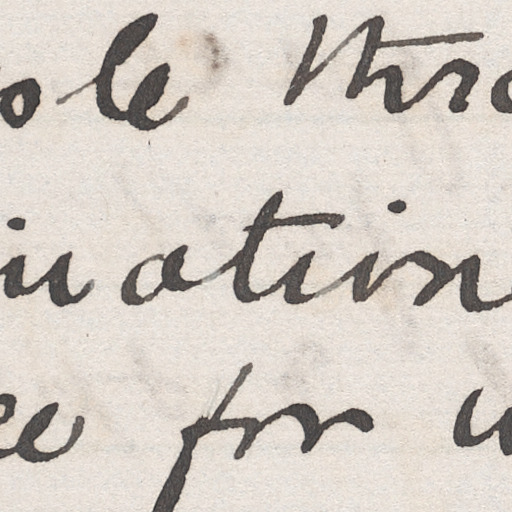 ole thro
ination
ee for u